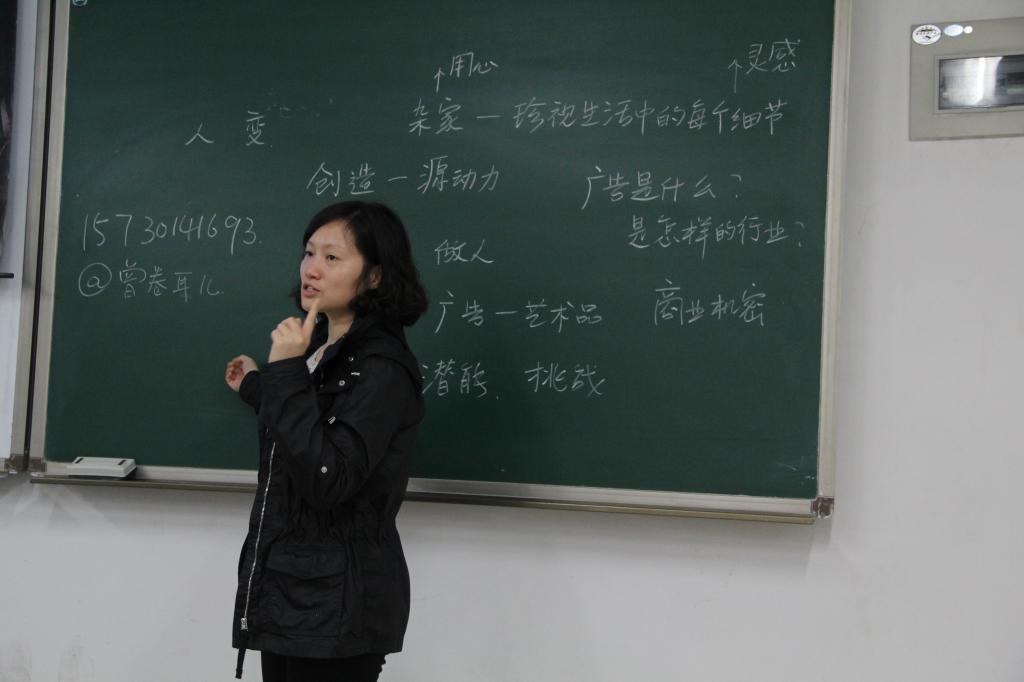 ↑用心
↑灵感
人 变
杂家 — 珍视生活中的每个细节
创造 — 源动力
广告是什么?
15730141693.
是怎样的行业?
@曾卷耳儿.
做人
广告 — 艺术品
商业机密
潜能. 挑战